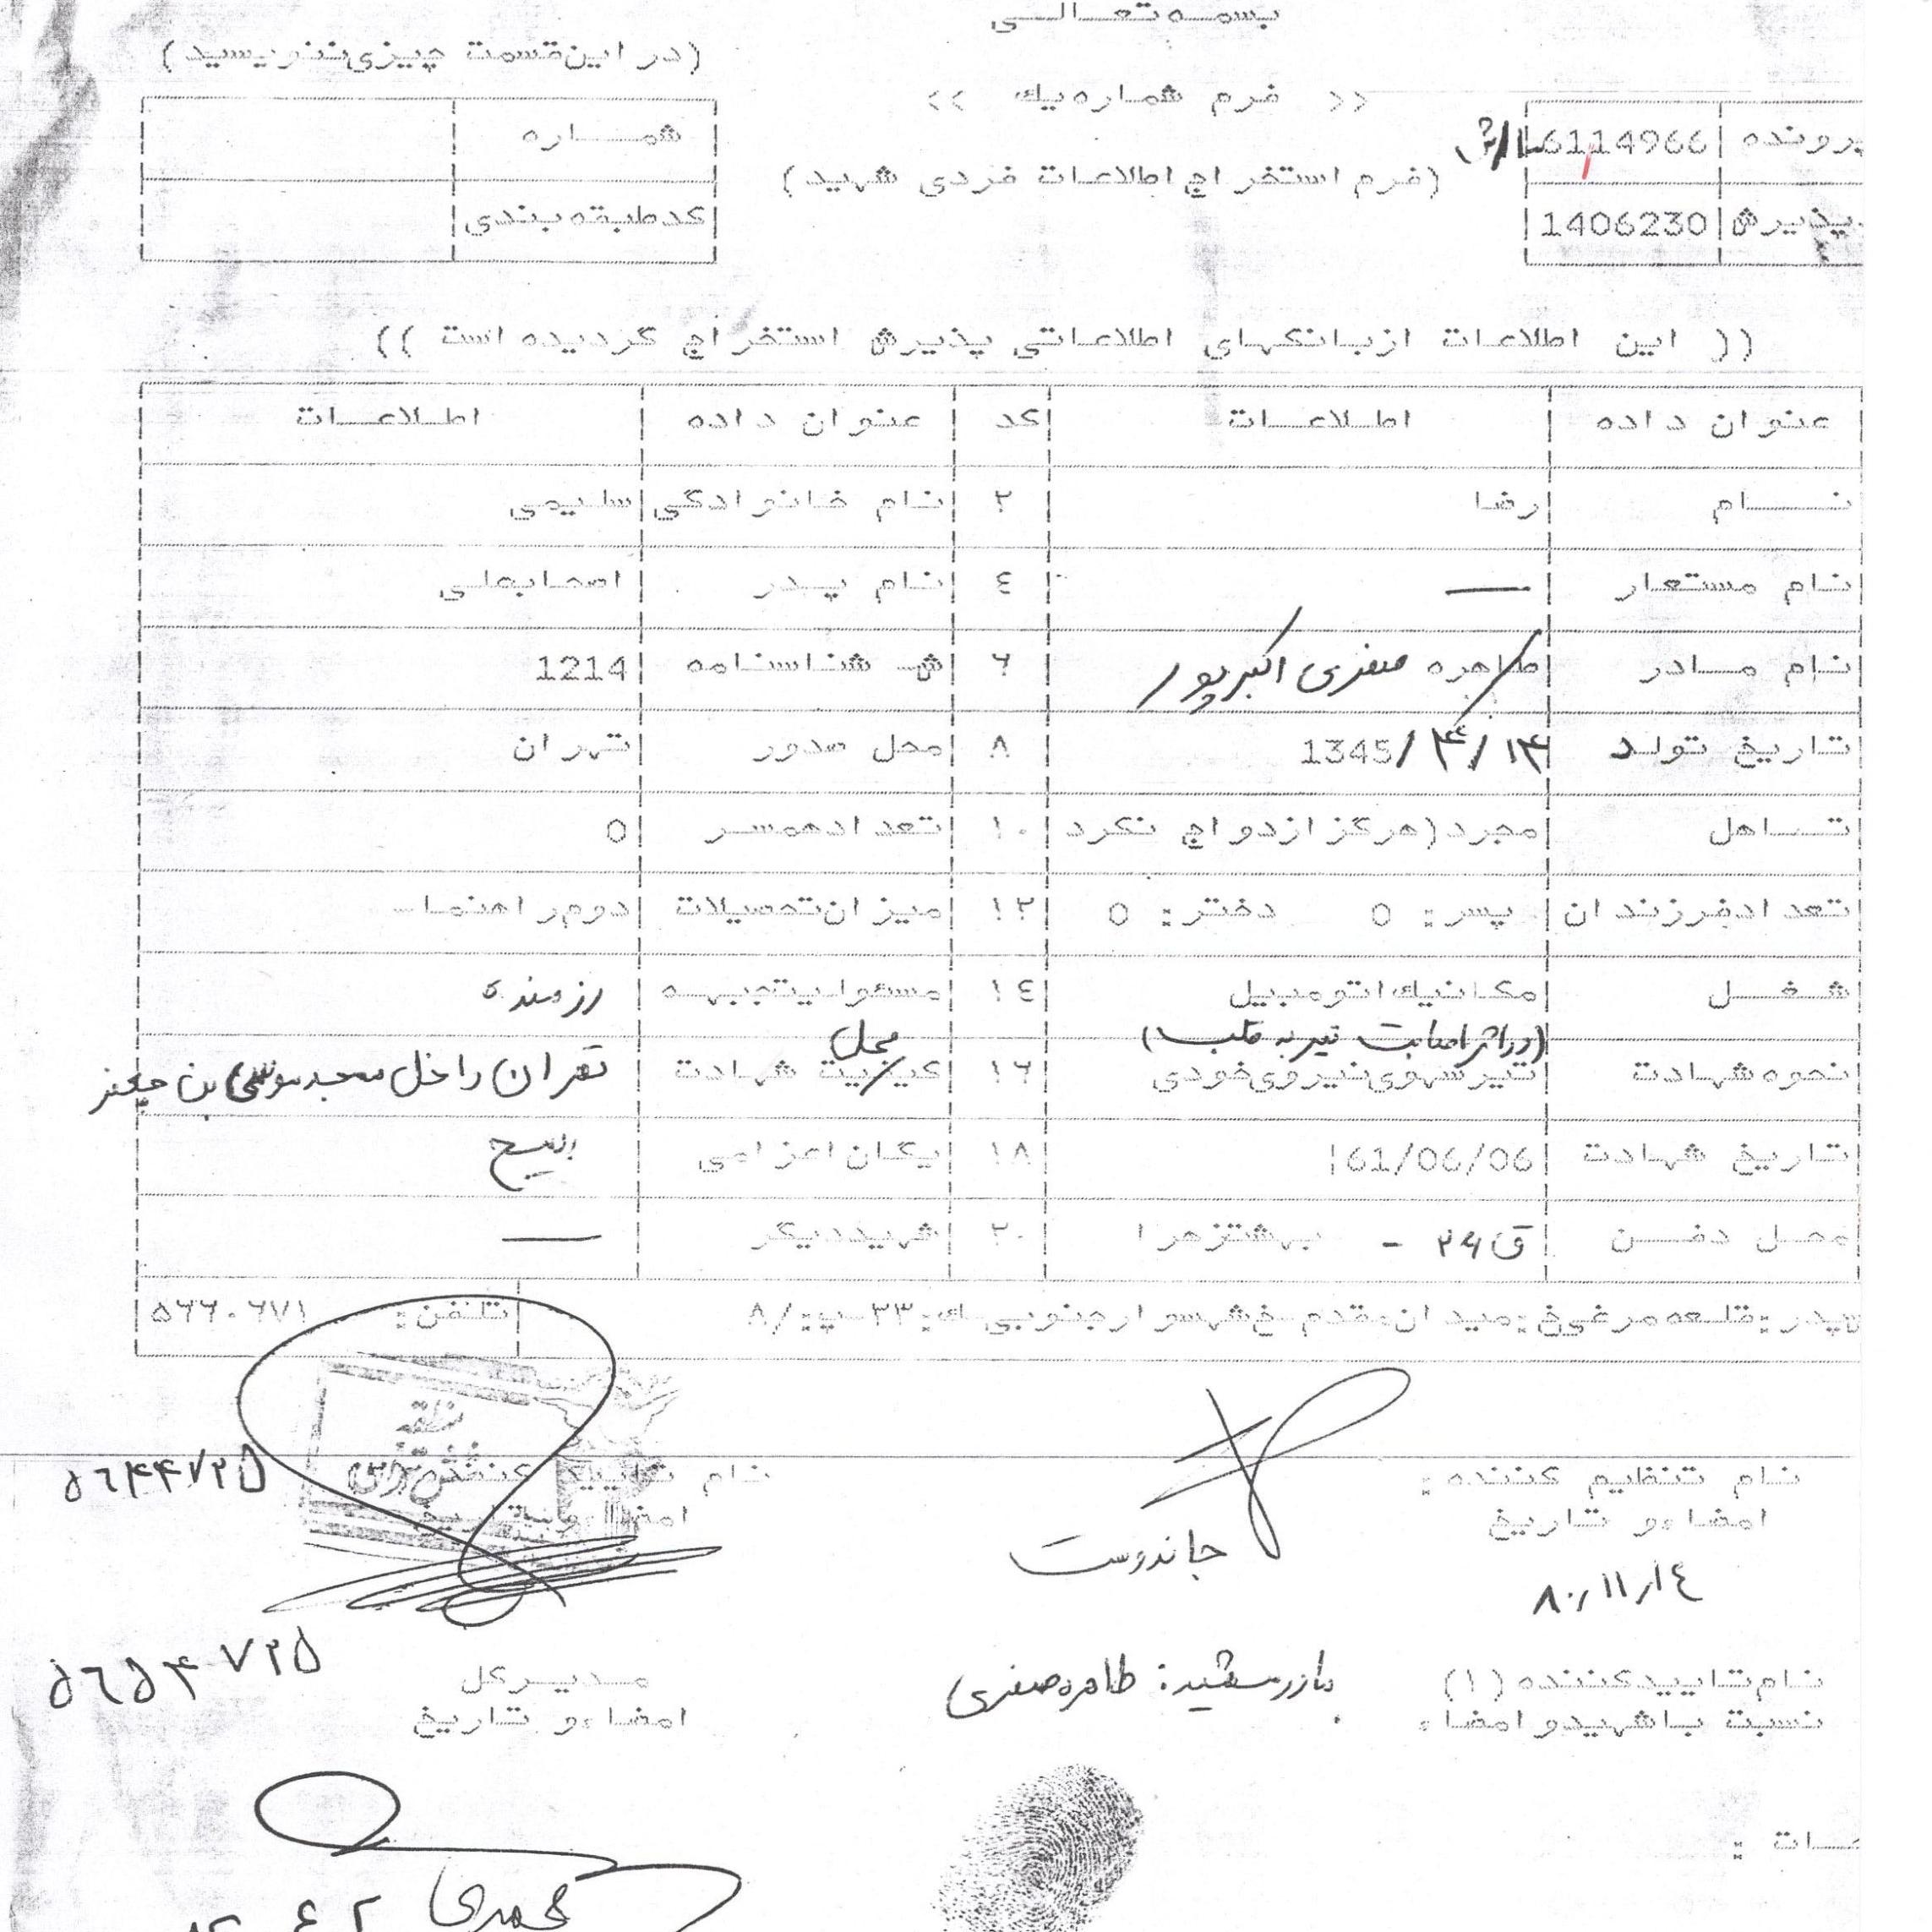 بسمه تعالی
(در این قسمت چیزی ننویسید)
<< فرم شماره یك >>
(فرم استخراج اطلاعات فردی شهید)
پرونده 6114966
پذیرش 1406230
شماره
کد طبقه بندی
(( این اطلاعات از بانکهای اطلاعاتی پذیرش استخراج گردیده است ))
عنوان داده اطلاعات کد عنوان داده اطلاعات
نام رضا ۲ نام خانوادگی سلیمی
نام مستعار — ٤ نام پدر اصحابعلی
نام مادر طاهره صفری اکبرپور ۶ ش شناسنامه 1214
تاریخ تولد 1345/۴/۱۴ ۸ محل صدور تهران
تاهل مجرد(هرگز ازدواج نکرد ۱۰ تعداد همسر 0
تعداد فرزندان پسر: 0 دختر: 0 ۱۲ میزان تحصیلات دوم راهنما
شغل مکانیك اتومبیل ۱٤ مسئولیت جبهه رزمنده
(در اثر اصابت تیر به قلب)
نحوه شهادت تیر سهوی نیروی خودی ۱۶ کیفیت محل شهادت تهران داخل مسجد موسی بن جعفر
تاریخ شهادت 61/06/06 ۱۸ یگان اعزامی بسیج
محل دفن ق ۲۴ - بهشت زهرا ۲۰ شهید دیگر —
پدر: قلعه مرغی خ: میدان مقدم خ شهسوار جنوبی ك: ۳۳ پ: ۸/ تلفن: ۵۶۶۰۶۷۱
نام تنظیم کننده :
امضاء و تاریخ
۸۰/۱۱/۱٤
جاندوست
نام تایید کننده
امضاء و تاریخ
منطقه
۵٦۴۴۷۲۵
۵٦۵۴۷۲۵
نام تایید کننده (۱)
نسبت با شهید و امضاء
مادر شهید: طاهره صفری
مدیر کل
امضاء و تاریخ
محمدی